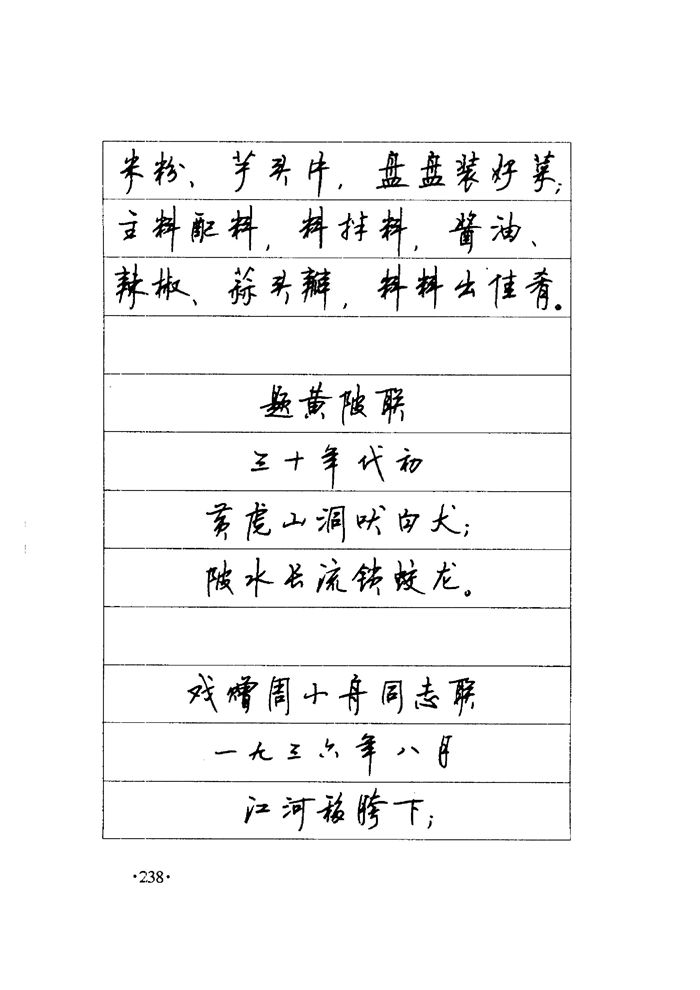 米粉、芋头片，盘盘装好菜；
主料配料，料拌料，酱油、
辣椒、蒜头瓣，料料出佳肴。
题黄陂联
三十年代初
黄虎山洞吠白犬；
陂水长流锁蛟龙。
戏赠周小舟同志联
一九三六年八月
江河移胯下；
·238·